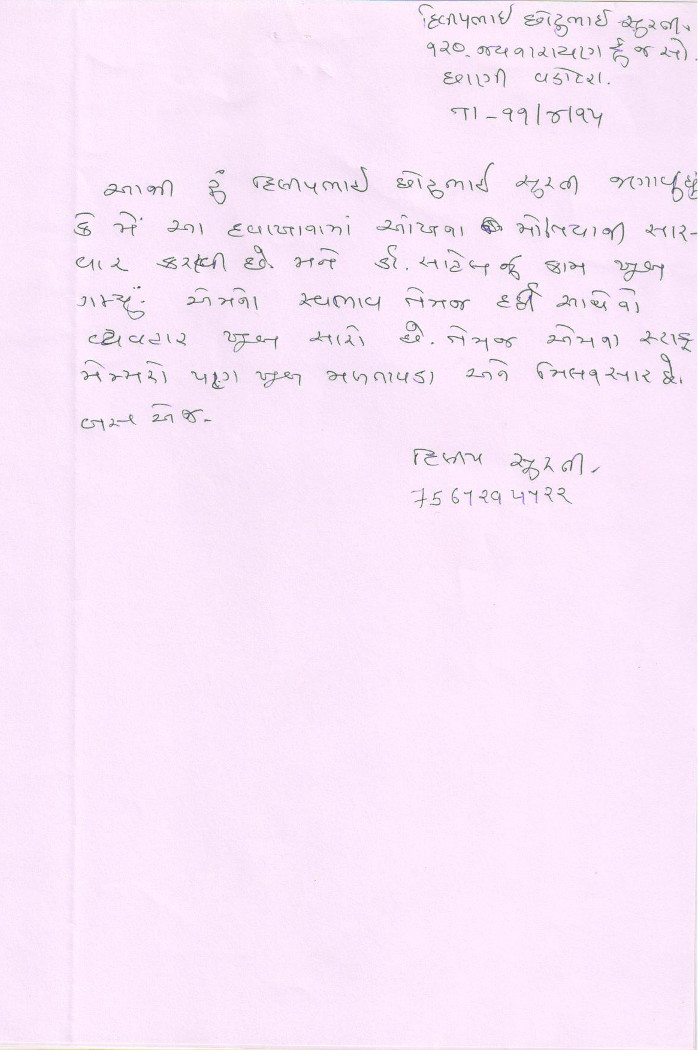 દિલીપભાઈ છોટુભાઈ સુરતી.
૧૨૦. જયનારાયણ કુંજ સો.
છાણી વડોદરા.
તા - ૧૧/૪/૧૫
આથી હું દિલીપભાઈ છોટુભાઈ સુરતી જણાવું છું
કે મેં આ દવાખાનામાં આંખના મોતિયાની સાર-
વાર કરાવી છે. મને ડૉ. પાટેલનું કામ ખુબ
ગમ્યું. એમનો સ્વભાવ તેમજ દર્દી સાથેનો
વ્યવહાર ખુબ સારો છે. તેમજ એમના સ્ટાફ
મેમ્બરો પણ ખુબ મળતાવડા અને મિલનસાર છે.
બસ એજ.
દિલીપ સુરતી.
7567૨૧૫૧૨૨